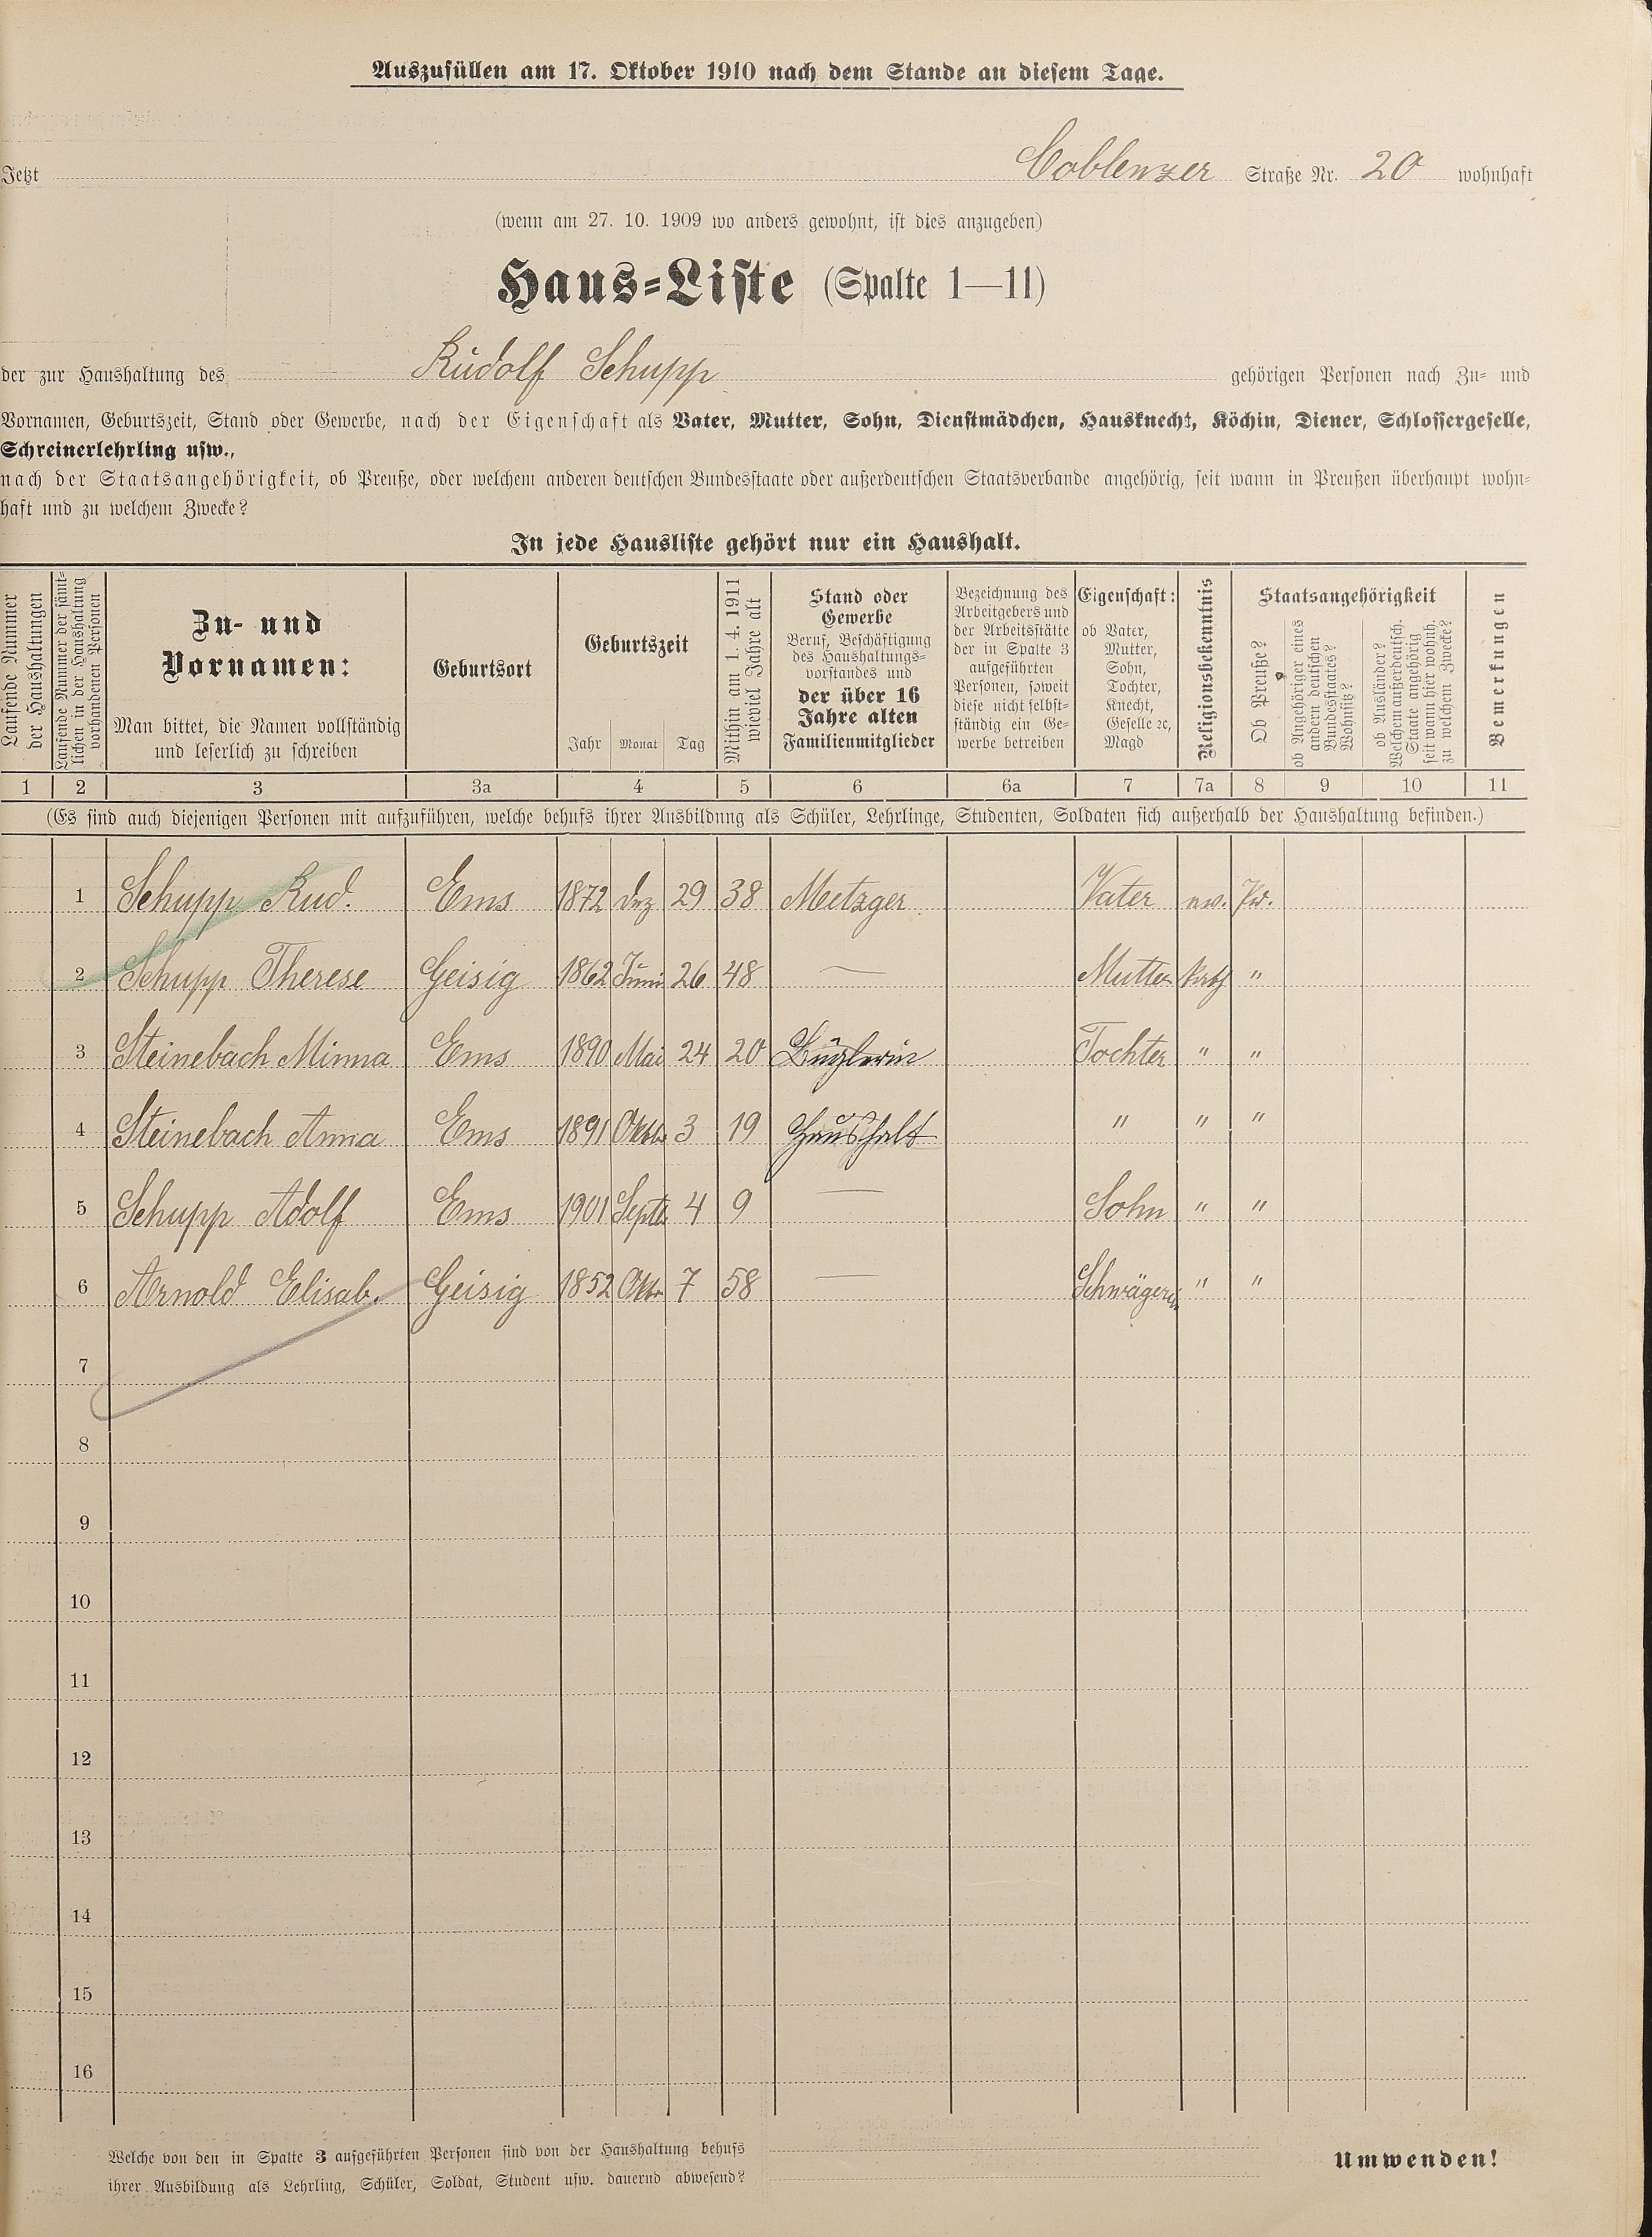 Auszufüllen am 17. Oktober 1910 nach dem Stande an diesem Tage.
Jetzt Coblenzer Straße Nr. 20 wohnhaft
(wenn am 27. 10. 1909 wo anders gewohnt, ist dies anzugeben)
Haus-Liste (Spalte 1—11)
der zur Haushaltung des Rudolf Schupp gehörigen Personen nach Zu- und
Vornamen, Geburtszeit, Stand oder Gewerbe, nach der Eigenschaft als Vater, Mutter, Sohn, Dienstmädchen, Hausknecht, Köchin, Diener, Schlossergeselle,
Schreinerlehrling usw.,
nach der Staatsangehörigkeit, ob Preuße, oder welchem anderen deutschen Bundesstaate oder außerdeutschen Staatsverbande angehörig, seit wann in Preußen überhaupt wohn-
haft und zu welchem Zwecke?
In jede Hausliste gehört nur ein Haushalt.
Laufende Nummer
der Haushaltungen
Laufende Nummer der sämt-
lichen in der Haushaltung
vorhandenen Personen
Zu- und
Vornamen:
Man bittet, die Namen vollständig
und leserlich zu schreiben
Geburtsort
Geburtszeit
Jahr Monat Tag
Mithin am 1. 4. 1911
wieviel Jahre alt
Stand oder
Gewerbe
Beruf, Beschäftigung
des Haushaltungs-
vorstandes und
der über 16
Jahre alten
Familienmitglieder
Bezeichnung des
Arbeitgebers und
der Arbeitsstätte
der in Spalte 3
aufgeführten
Personen, soweit
diese nicht selbst-
ständig ein Ge-
werbe betreiben
Eigenschaft:
ob Vater,
Mutter,
Sohn,
Tochter,
Knecht,
Geselle ꝛc,
Magd
Religionsbekenntnis
Staatsangehörigkeit
Ob Preuße?
ob Angehöriger eines
andern deutschen
Bundesstaates?
Wohnsitz?
ob Ausländer?
Welchem außerdeutsch.
Staate angehörig
seit wann hier wohnh.
zu welchem Zwecke?
Bemerkungen
1 2 3 3a 4 5 6 6a 7 7a 8 9 10 11
(Es sind auch diejenigen Personen mit aufzuführen, welche behufs ihrer Ausbildung als Schüler, Lehrlinge, Studenten, Soldaten sich außerhalb der Haushaltung befinden.)
1 Schupp Rud. Ems 1872 Dez 29 38 Metzger Vater Pr.
2 Schupp Therese Geisig 1862 Juni 26 48 — Mutter kath "
3 Steinebach Minna Ems 1890 Mai 24 20 Büglerin Tochter " "
4 Steinebach Anna Ems 1891 Oktb. 3 19 Haushalt " " "
5 Schupp Adolf Ems 1901 Septb. 4 9 — Sohn " "
6 Arnold Elisab. Geisig 1852 Okt. 7 58 — Schwägerin " "
7
8
9
10
11
12
13
14
15
16
Welche von den in Spalte 3 aufgeführten Personen sind von der Haushaltung behufs
ihrer Ausbildung als Lehrling, Schüler, Soldat, Student usw. dauernd abwesend?
Umwenden!